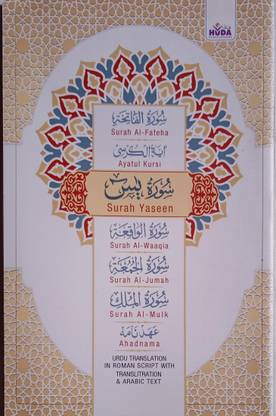 HUDA
سُورَةُ الْفَاتِحَةِ
Surah Al-Fateha
آيَةُ الْكُرْسِيِّ
Ayatul Kursi
سُورَة يٰسٓ
Surah Yaseen
سُورَةُ الْوَاقِعَةِ
Surah Al-Waaqia
سُورَةُ الْجُمُعَةِ
Surah Al-Jumah
سُورَةُ الْمُلْكِ
Surah Al-Mulk
عہد نامہ
Ahadnama
URDU TRANSLATION
IN ROMAN SCRIPT WITH
TRANSLITRATION
& ARABIC TEXT